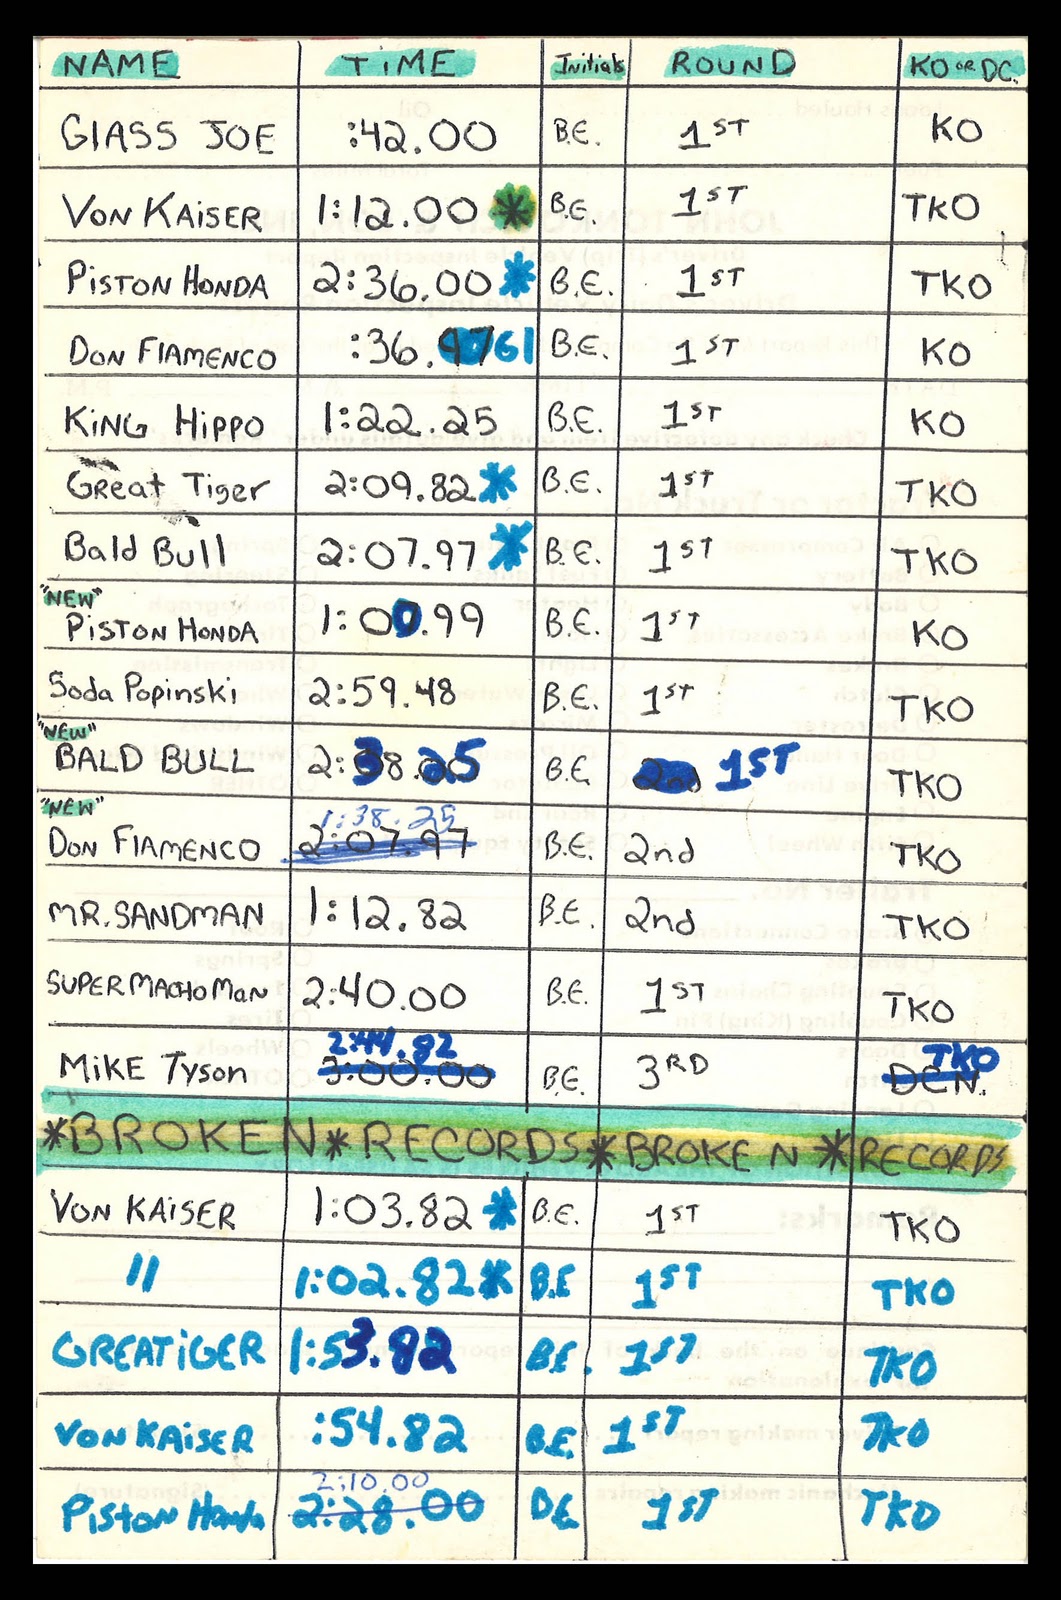 NAME TiME Initials ROUND KO OR DC.
GlASS JOE :42.00 B.E. 1ST KO
VON KAiSER 1:12.00 * B.E. 1ST TKO
PiSTON HONDA 2:36.00 * B.E. 1ST TKO
DON FlAMENCO :36.61 B.E. 1ST KO
KiNG HiPPO 1:22.25 B.E. 1ST KO
Great Tiger 2:09.82 * B.E. 1ST TKO
Bald Bull 2:07.97 * B.E. 1ST TKO
"NEW"
PiSTON HONDA 1:00.99 B.E. 1ST KO
Soda Popinski 2:59.48 B.E. 1ST TKO
"NEW"
BALD BULL 2:38.25 B.E 2nd 1ST TKO
"NEW" 1:38.25
DON FlAMENCO 2:07.97 B.E. 2nd TKO
MR. SANDMAN 1:12.82 B.E. 2nd TKO
SUPER MACHO MaN 2:40.00 B.E. 1ST TKO
2:44.82 TKO
MiKE Tyson 3:00.00 B.E. 3RD DCN.
*BROKEN* RECORDS * BROKEN * RECORDS
VON KAiSER 1:03.82 * B.E. 1ST TKO
" 1:02.82 * B.E 1ST TKO
GREATiGER 1:53.82 B.E. 1ST TKO
VON KAiSER :54.82 B.E. 1ST TKO
2:10.00
PiSTON Honda 2:28.00 D.E. 1ST TKO